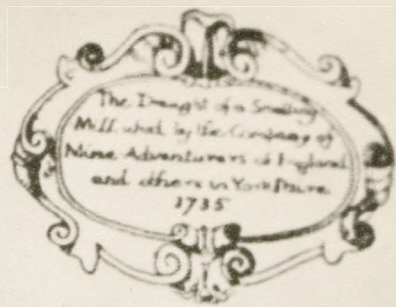 The Draught of a Smelting
Mill used by the Company of
Mine Adventurers of England
and others in York Shire
1735